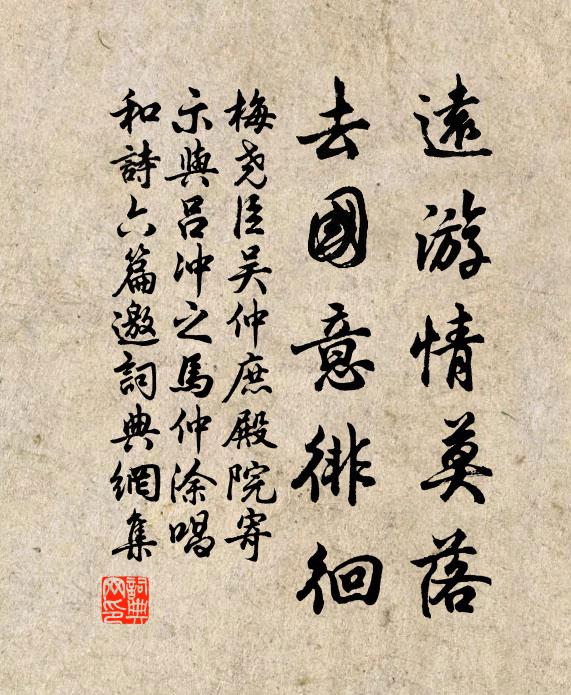 遠游情莫落
去國意徘徊
梅尧臣吴仲庶殿院寄
示與吕冲之馬仲涂唱
和詩六篇邀詞典網集
詞典
网印